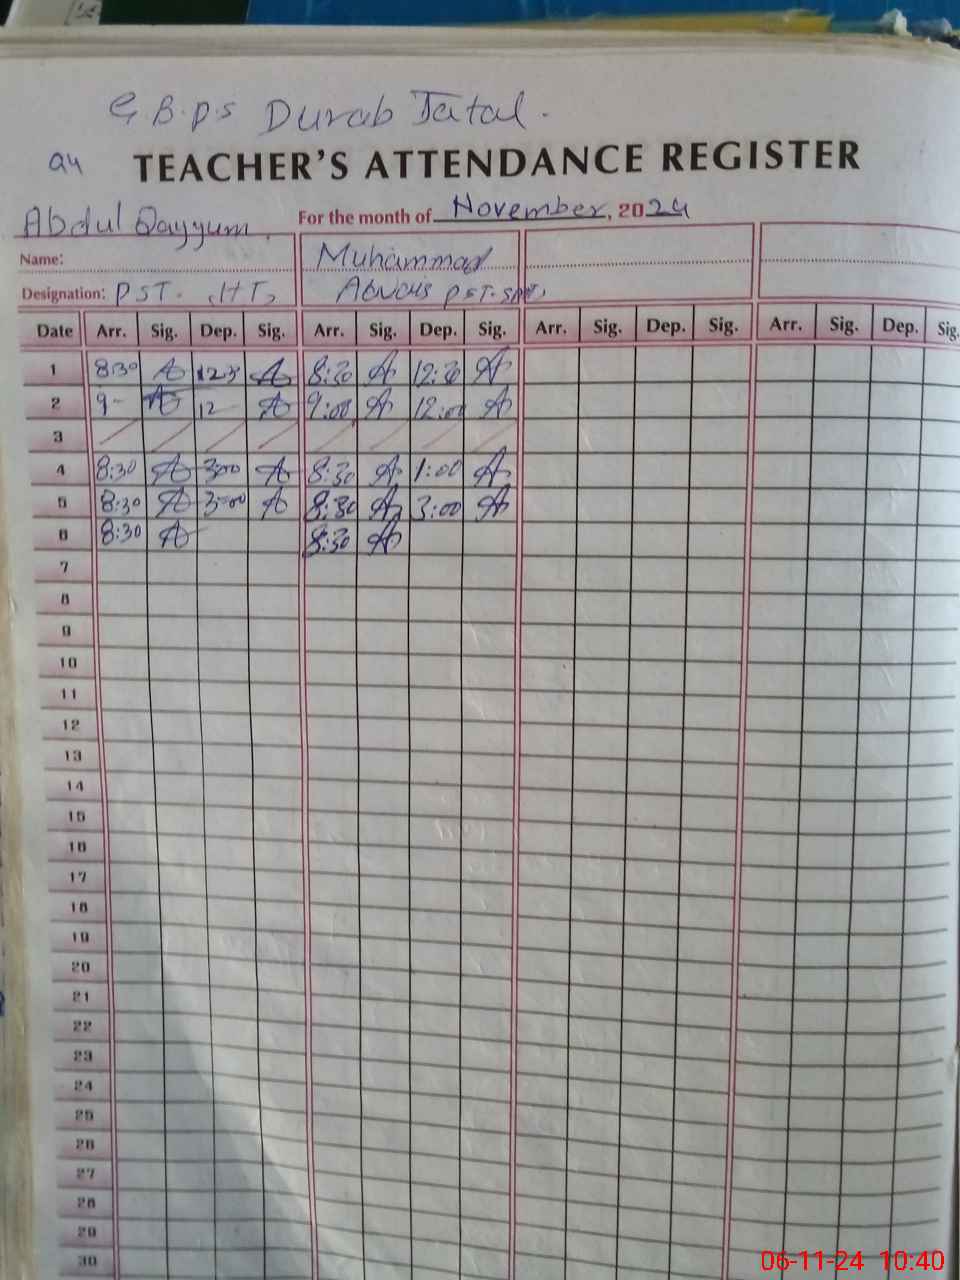 G B.P.S Durab Jatal.
TEACHER'S ATTENDANCE REGISTER
Abdul Qayyum.
For the month of November, 2024
Name: Muhammad
Designation: PST. (HT) PST.
Date Arr. Sig. Dep. Sig. Arr. Sig. Dep. Sig. Arr. Sig. Dep. Sig. Arr. Sig. Dep. Sig.
1 8:30 12:3 8:30 12:30
2 9- 12 9:00 12:00
3
4 8:30 3:00 8:30 1:00
5 8:30 3:00 8:30 3:00
6 8:30 8:30
7
8
9
10
11
12
13
14
15
16
17
18
19
20
21
22
23
24
25
26
27
28
29
30
06-11-24 10:40